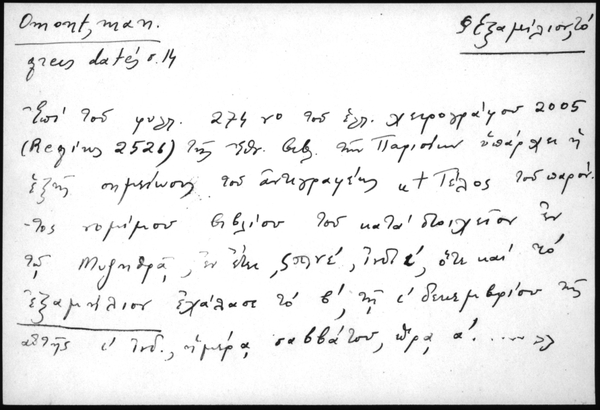 Omont, man.
grecs datés σ. 14
Ἑξαμίλιον, τό
Ἐπί τοῦ φυλλ. 274 vo τοῦ ἑλλ. χειρογράφου 2005
(Regius 2526) τῆς Ἐθν. Βιβλ. τῶν Παρισίων ὑπάρχει ἡ
ἑξῆς σημείωσις τοῦ ἀντιγραφέως « † Τέλος τοῦ παρόν-
-τος νομίμου βιβλίου τοῦ κατά στοιχεῖον ἐν
τῷ Μυζηθρᾷ, ἐν ἔτει ͵ς , ἰνδ. ι΄, ὅτε καί τό
ἑξαμήλιον ἐχάλασε τό β΄, τῇ ι΄ δεκεμβρίου τῆς
αὐτῆς ι΄ ἰνδ., ἡμέρᾳ σαββάτου, ὥρᾳ α΄.... »